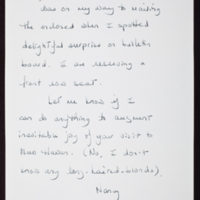 was on my way to mailing
the enclosed when I spotted
delightful surprise on bulletin
board. I am reserving a
front row seat.
Let me know if I
can do anything to augment
inevitable joy of your visit to
New Haven. (No, I don't
know any long-haired-blonds).
Nancy